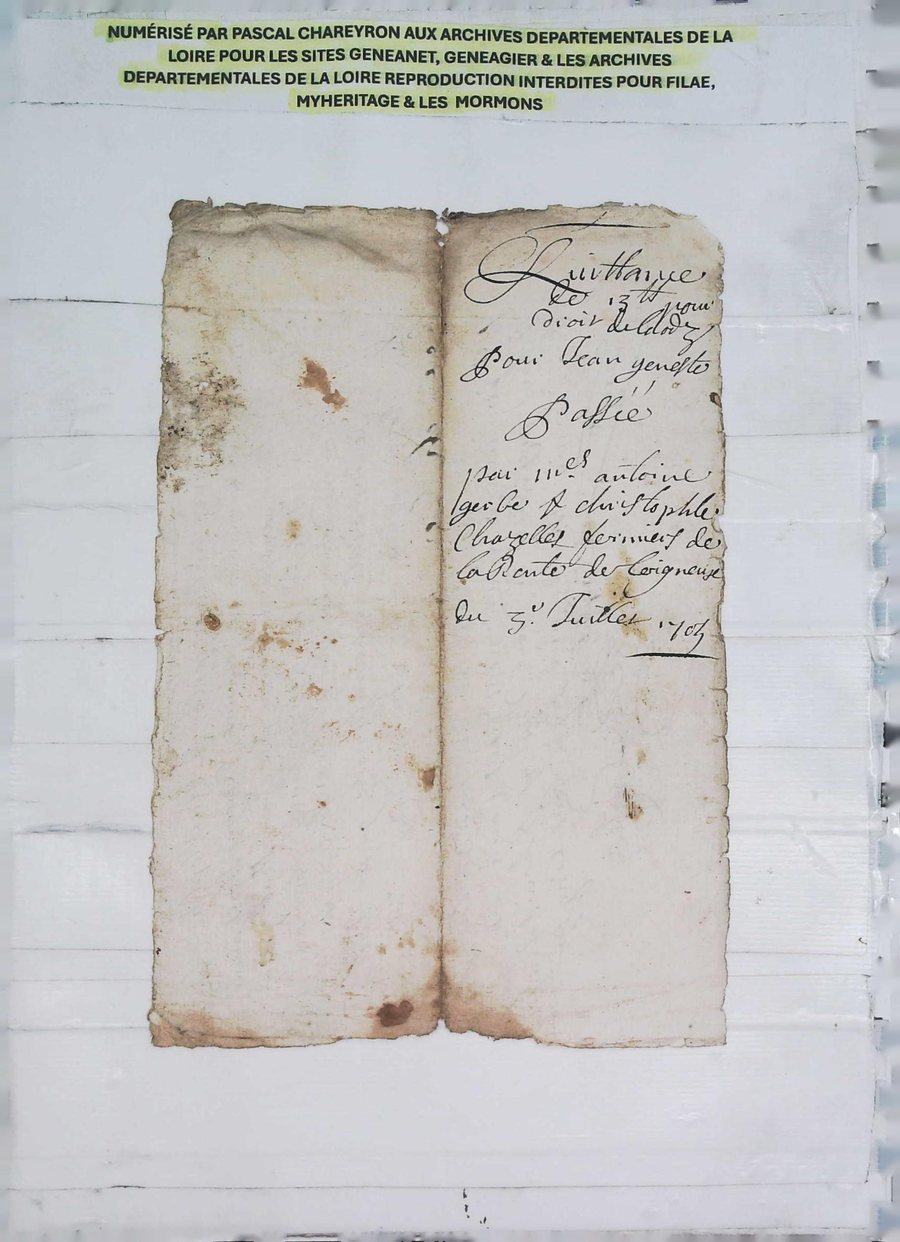 NUMÉRISÉ PAR PASCAL CHAREYRON AUX ARCHIVES DEPARTEMENTALES DE LA
LOIRE POUR LES SITES GENEANET, GENEAGIER & LES ARCHIVES
DEPARTEMENTALES DE LA LOIRE REPRODUCTION INTERDITES POUR FILAE,
MYHERITAGE & LES MORMONS
Quittance
de 13tt pour
droit de
Pour Jean geneste
Passée
par mes antoine
gerbe & christophle
Chazelles fermiers de
la Rente de Coigneuse
du 3e Juillet